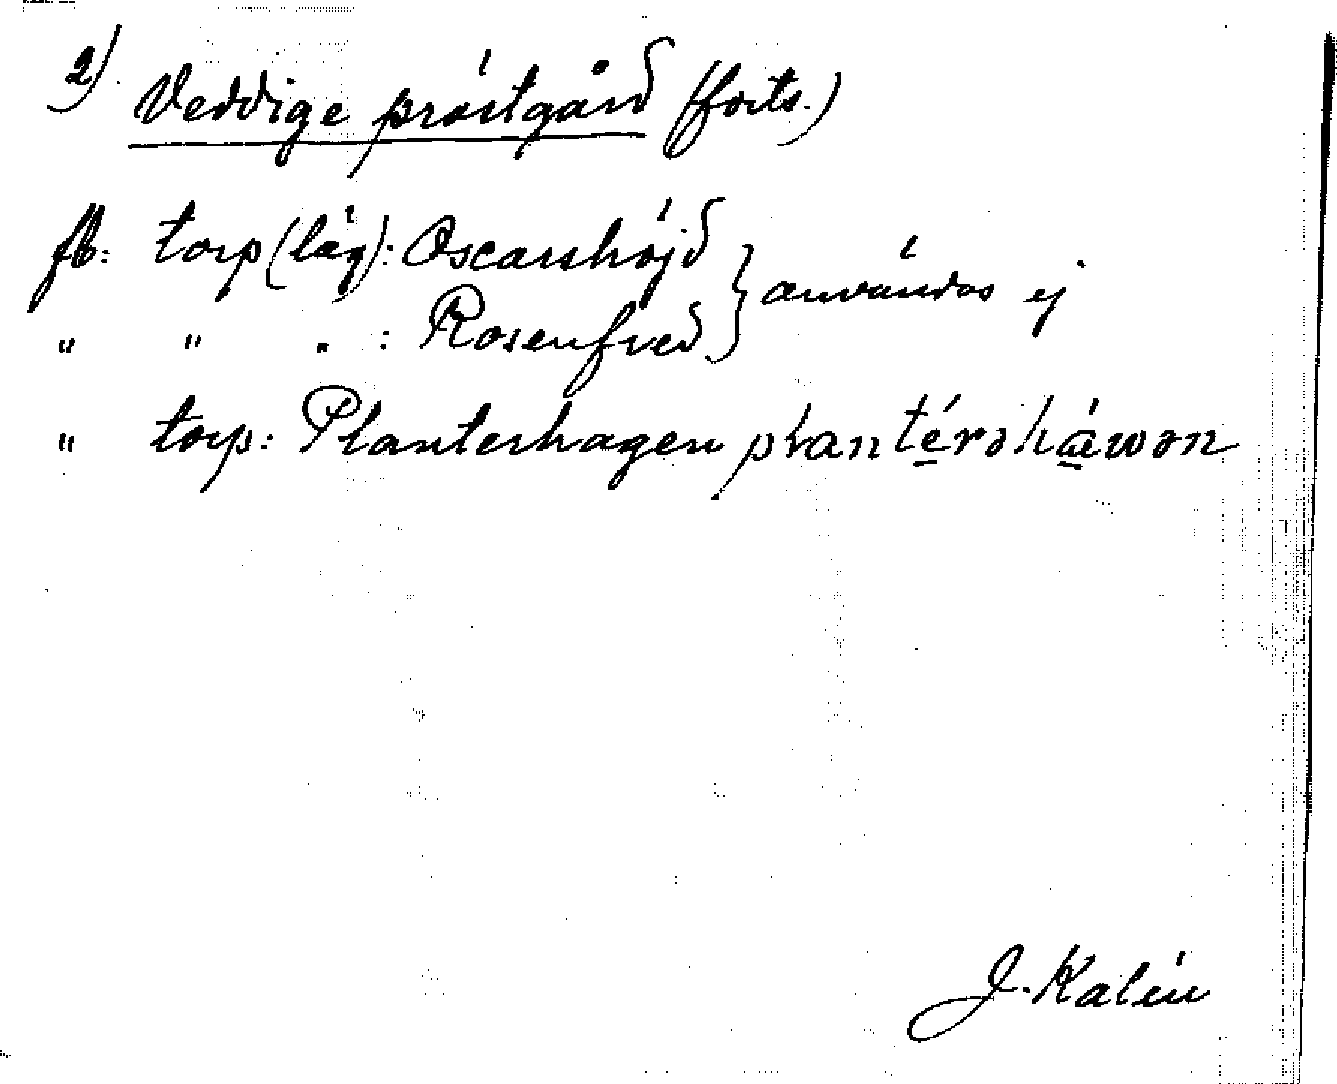 2) Veddige prästgård (forts.)
fb: torp (läg): Oscarshöjd } användas ej
" " " : Rosenfred
" torp: Planterhagen plantérshäwon
J. Kalén